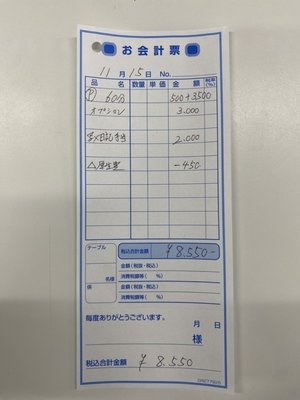 お会計票
11月15日 No.
品名 数量 単価 金額 税率(%)
Ⓟ 60分 500+3500
オプション 3.000
写メ日記手当 2.000
△厚生費 -450
テーブル 税込合計金額 ¥8.550-
名様 金額(税抜・税込)
消費税額等( %)
係 金額(税抜・税込)
消費税額等( %)
毎度ありがとうございます。
月 日
様
税込合計金額 ¥8.550